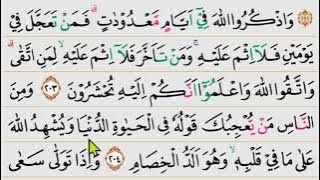 وَاذْكُرُوا اللّٰهَ فِيْٓ اَيَّامٍ مَّعْدُوْدٰتٍ ۗ فَمَنْ تَعَجَّلَ فِيْ
يَوْمَيْنِ فَلَآ اِثْمَ عَلَيْهِ ۚ وَمَنْ تَاَخَّرَ فَلَآ اِثْمَ عَلَيْهِ ۙ لِمَنِ اتَّقٰى ۗ
وَاتَّقُوا اللّٰهَ وَاعْلَمُوْٓا اَنَّكُمْ اِلَيْهِ تُحْشَرُوْنَ ﴿٢٠٣﴾ وَمِنَ
النَّاسِ مَنْ يُّعْجِبُكَ قَوْلُهٗ فِى الْحَيٰوةِ الدُّنْيَا وَيُشْهِدُ اللّٰهَ
عَلٰى مَا فِيْ قَلْبِهٖ ۙ وَهُوَ اَلَدُّ الْخِصَامِ ﴿٢٠٤﴾ وَاِذَا تَوَلّٰى سَعٰى